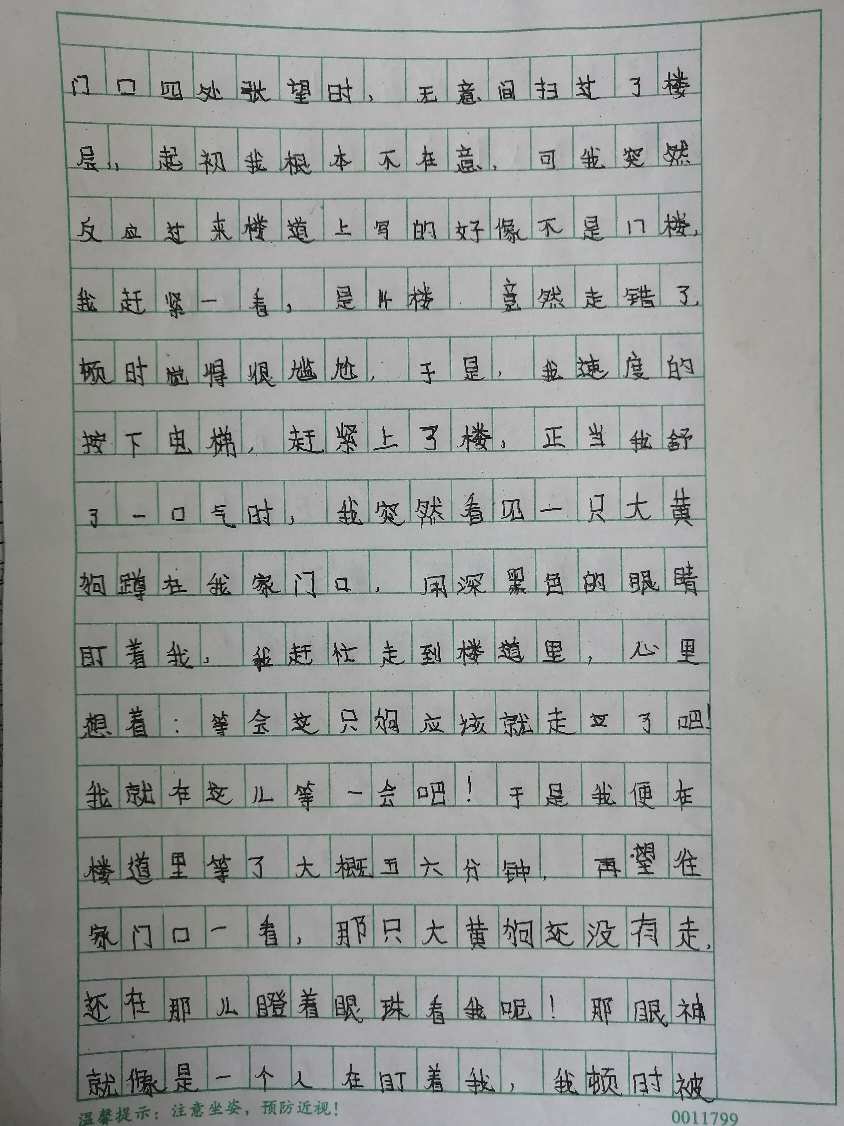 门口四处张望时，无意间扫过了楼
层，起初我根本不在意，可我突然
反应过来楼道上写的好像不是17楼，
我赶紧一看，是14楼 竟然走错了，
顿时觉得很尴尬，于是，我速度的
按下电梯，赶紧上了楼，正当我舒
了一口气时，我突然看见一只大黄
狗蹲在我家门口，用深黑色的眼睛
盯着我，我赶忙走到楼道里，心里
想着：等会这只狗应该就走了吧！
我就在这儿等一会吧！于是我便在
楼道里等了大概五六分钟，再望往
家门口一看，那只大黄狗还没有走，
还在那儿瞪着眼珠看我呢！那眼神
就像是一个人在盯着我，我顿时被
温馨提示：注意坐姿，预防近视！ 0011799